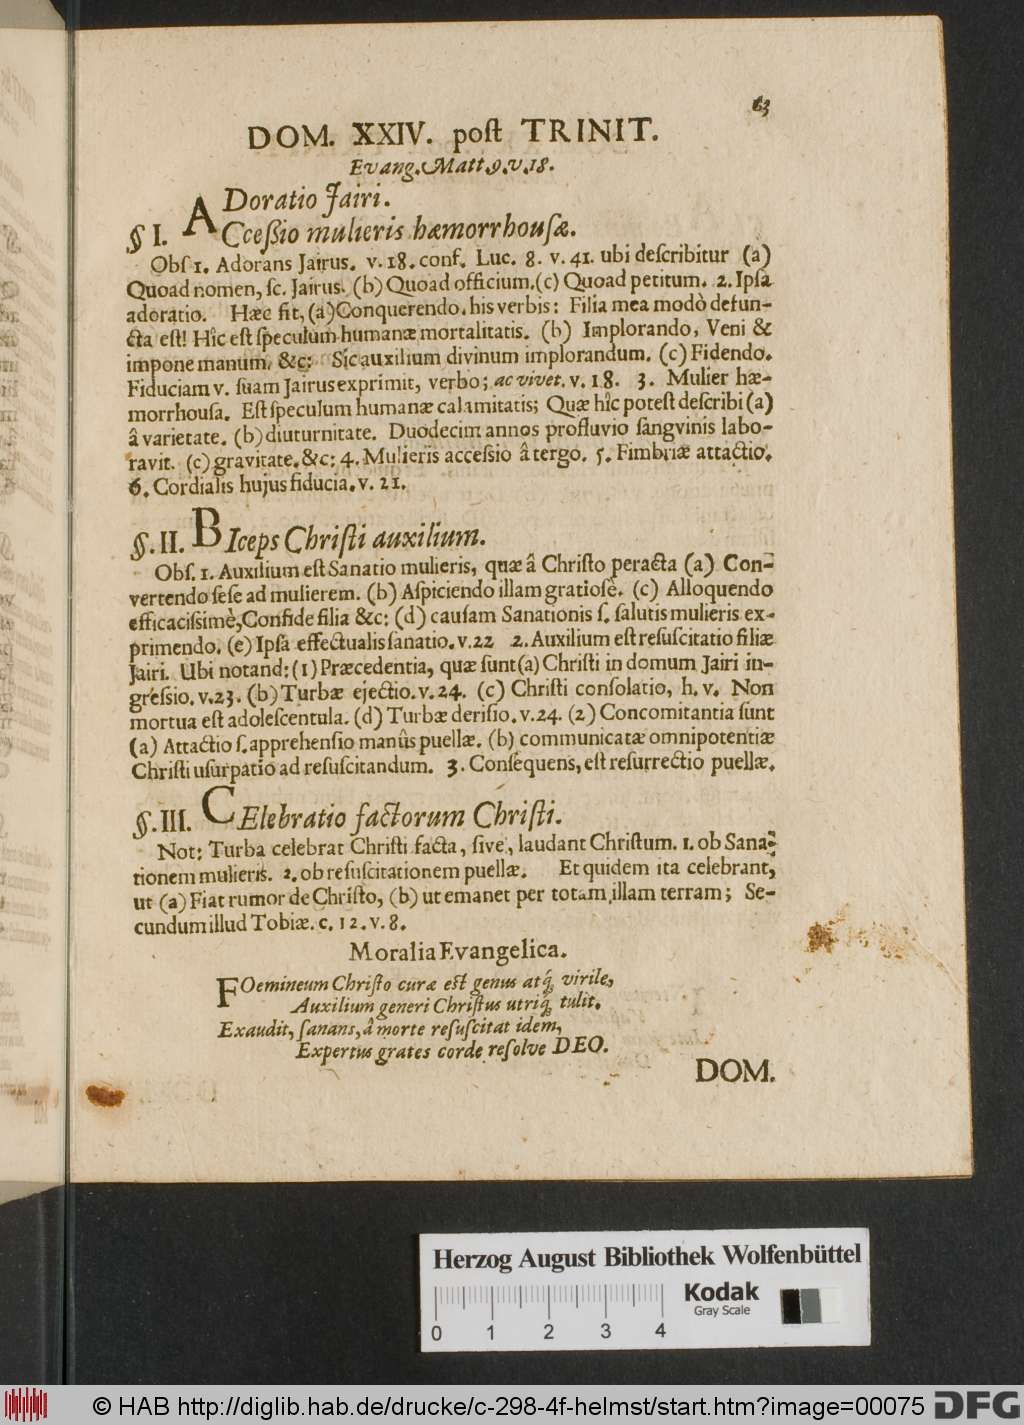 63
DOM. XXIV. poſt TRINIT.
Evang. Matt. 9. v. 18.
ADoratio Jairi.
§ I. ACceſſio mulieris hæmorrhouſæ.
Obſ 1. Adorans Jairus. v. 18. conf. Luc. 8. v. 41. ubi deſcribitur (a)
Quoad nomen, ſc. Jairus. (b) Quoad officium. (c) Quoad petitum. 2. Ipſa
adoratio. Hæc fit, (a) Conquerendo. his verbis: Filia mea modò defun-
cta eſt! Hîc eſt ſpeculum humanæ mortalitatis. (b) Implorando, Veni &
impone manum. &c: Sic auxilium divinum implorandum. (c) Fidendo.
Fiduciam v. ſuam Jairus exprimit, verbo; ac vivet. v. 18. 3. Mulier hæ-
morrhouſa. Eſt ſpeculum humanæ calamitatis; Quæ hîc poteſt deſcribi (a)
â varietate. (b) diuturnitate. Duodecim annos profluvio ſangvinis labo-
ravit. (c) gravitate. &c: 4. Mulieris acceſsio â tergo. 5. Fimbriæ attactio.
6. Cordialis hujus fiducia. v. 21.
§. II. BIceps Chriſti auxilium.
Obſ. 1. Auxilium eſt Sanatio mulieris, quæ â Chriſto peracta (a) Con-
vertendo ſeſe ad mulierem. (b) Aſpiciendo illam gratioſè. (c) Alloquendo
efficaciſsimè, Confide filia &c: (d) cauſam Sanationis ſ. ſalutis mulieris ex-
primendo. (e) Ipſa effectualis ſanatio. v. 22 2. Auxilium eſt reſuſcitatio filiæ
Jairi. Ubi notand: (1) Præcedentia, quæ ſunt (a) Chriſti in domum Jairi in-
greſsio. v. 23. (b) Turbæ ejectio. v. 24. (c) Chriſti conſolatio, h. v. Non
mortua eſt adoleſcentula. (d) Turbæ deriſio. v. 24. (2) Concomitantia ſunt
(a) Attactio ſ. apprehenſio manûs puellæ. (b) communicatæ omnipotentiæ
Chriſti uſurpatio ad reſuſcitandum. 3. Conſequens, eſt reſurrectio puellæ.
§. III. CElebratio factorum Chriſti.
Not: Turba celebrat Chriſti facta, ſive, laudant Chriſtum. 1. ob Sana-
tionem mulieris. 2. ob reſuſcitationem puellæ. Et quidem ita celebrant,
ut (a) Fiat rumor de Chriſto, (b) ut emanet per totam illam terram; Se-
cundum illud Tobiæ. c. 12. v. 8.
Moralia Evangelica.
FOemineum Chriſto curæ eſt genus atq́; virile,
Auxilium generi Chriſtus utriq́; tulit.
Exaudit, ſanans, â morte reſuſcitat idem,
Expertus grates corde reſolve DEO.
DOM.
Herzog August Bibliothek Wolfenbüttel
Kodak
Gray Scale
0 1 2 3 4
© HAB http://diglib.hab.de/drucke/c-298-4f-helmst/start.htm?image=00075
DFG